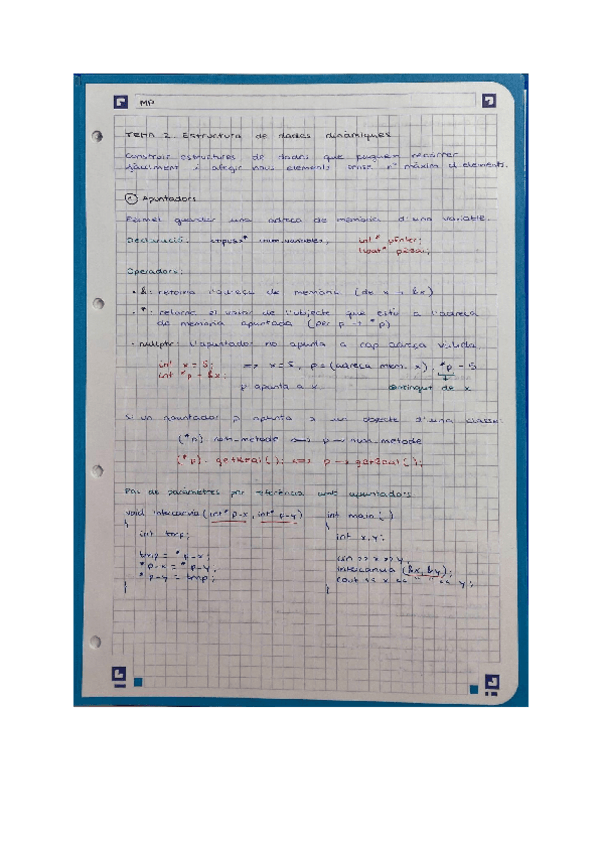 MP
TEMA 2. Estructura de dades dinàmiques
Construir estructures de dades que puguen recórrer
fàcilment i afegir nous elements sense nº màxim d'elements.
① Apuntadors
Permet guardar una adreça de memòria d'una variable.
Declaració: tipus* nom_variable; int* punter;
float* p
Operadors:
• &: retorna l'adreça de memòria (de x → &x)
• *: retorna el valor de l'objecte que està a l'adreça
de memòria apuntada (per p → *p)
• nullptr: l'apuntador no apunta a cap adreça vàlida.
int x = 5; => x=5, p=(adreça mem. x), *p = 5
int *p = &x; p apunta a x contingut de x
Si un apuntador p apunta a un objecte d'una classe:
(*p).nom_metode <=> p->nom_metode
(*p).getReal(); <=> p->getReal();
Pas de paràmetres per referència amb apuntadors
void intercanvia(int* p-x, int* p-y) int main()
{ {
int tmp; int x,y;
tmp = *p-x; cin >> x >> y;
*p-x = *p-y; intercanvia(&x,&y);
*p-y = tmp; cout << x << " " << y;
} }